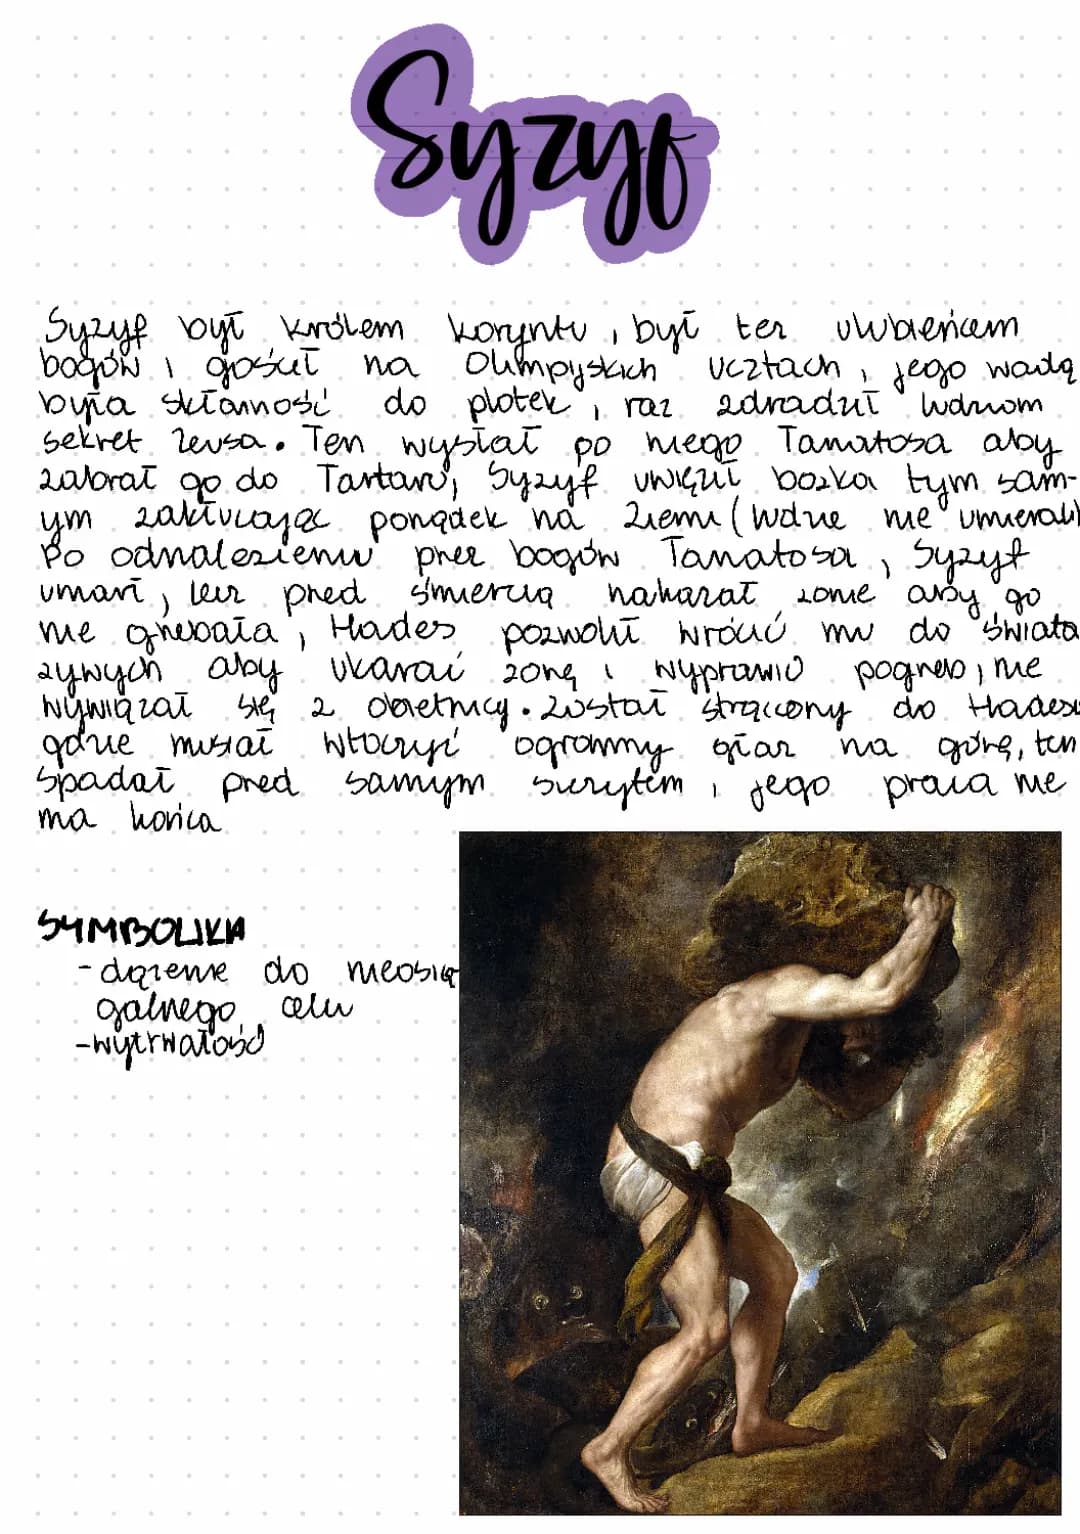 Syzyf
Syzyf był królem koryntu, był też ulubieńcem
bogów i gościł na Olimpyskich ucztach, jego wadą
była skłonność do plotek, raz zdradził ludziom
sekret Zeusa. Ten wysłał po niego Tanatosa aby
zabrał go do Tartaru, Syzyf uwięził bożka tym sam-
ym zakłócając porządek na Ziemi (ludzie nie umierali)
Po odnalezieniu przez bogów Tanatosa, Syzyf
umarł, lecz przed śmiercią nakazał żonie aby go
nie grzebała, Hades pozwolił wrócić mu do świata
żywych aby ukarać żonę i wyprawić pogrzeb, nie
wywiązał się z obietnicy. Został strącony do Hadesu
gdzie musiał wtoczyć ogromny głaz na górę, ten
spadał przed samym szczytem, jego praca nie
ma końca
SYMBOLIKA
-dążenie do nieosią
galnego celu
-wytrwałość